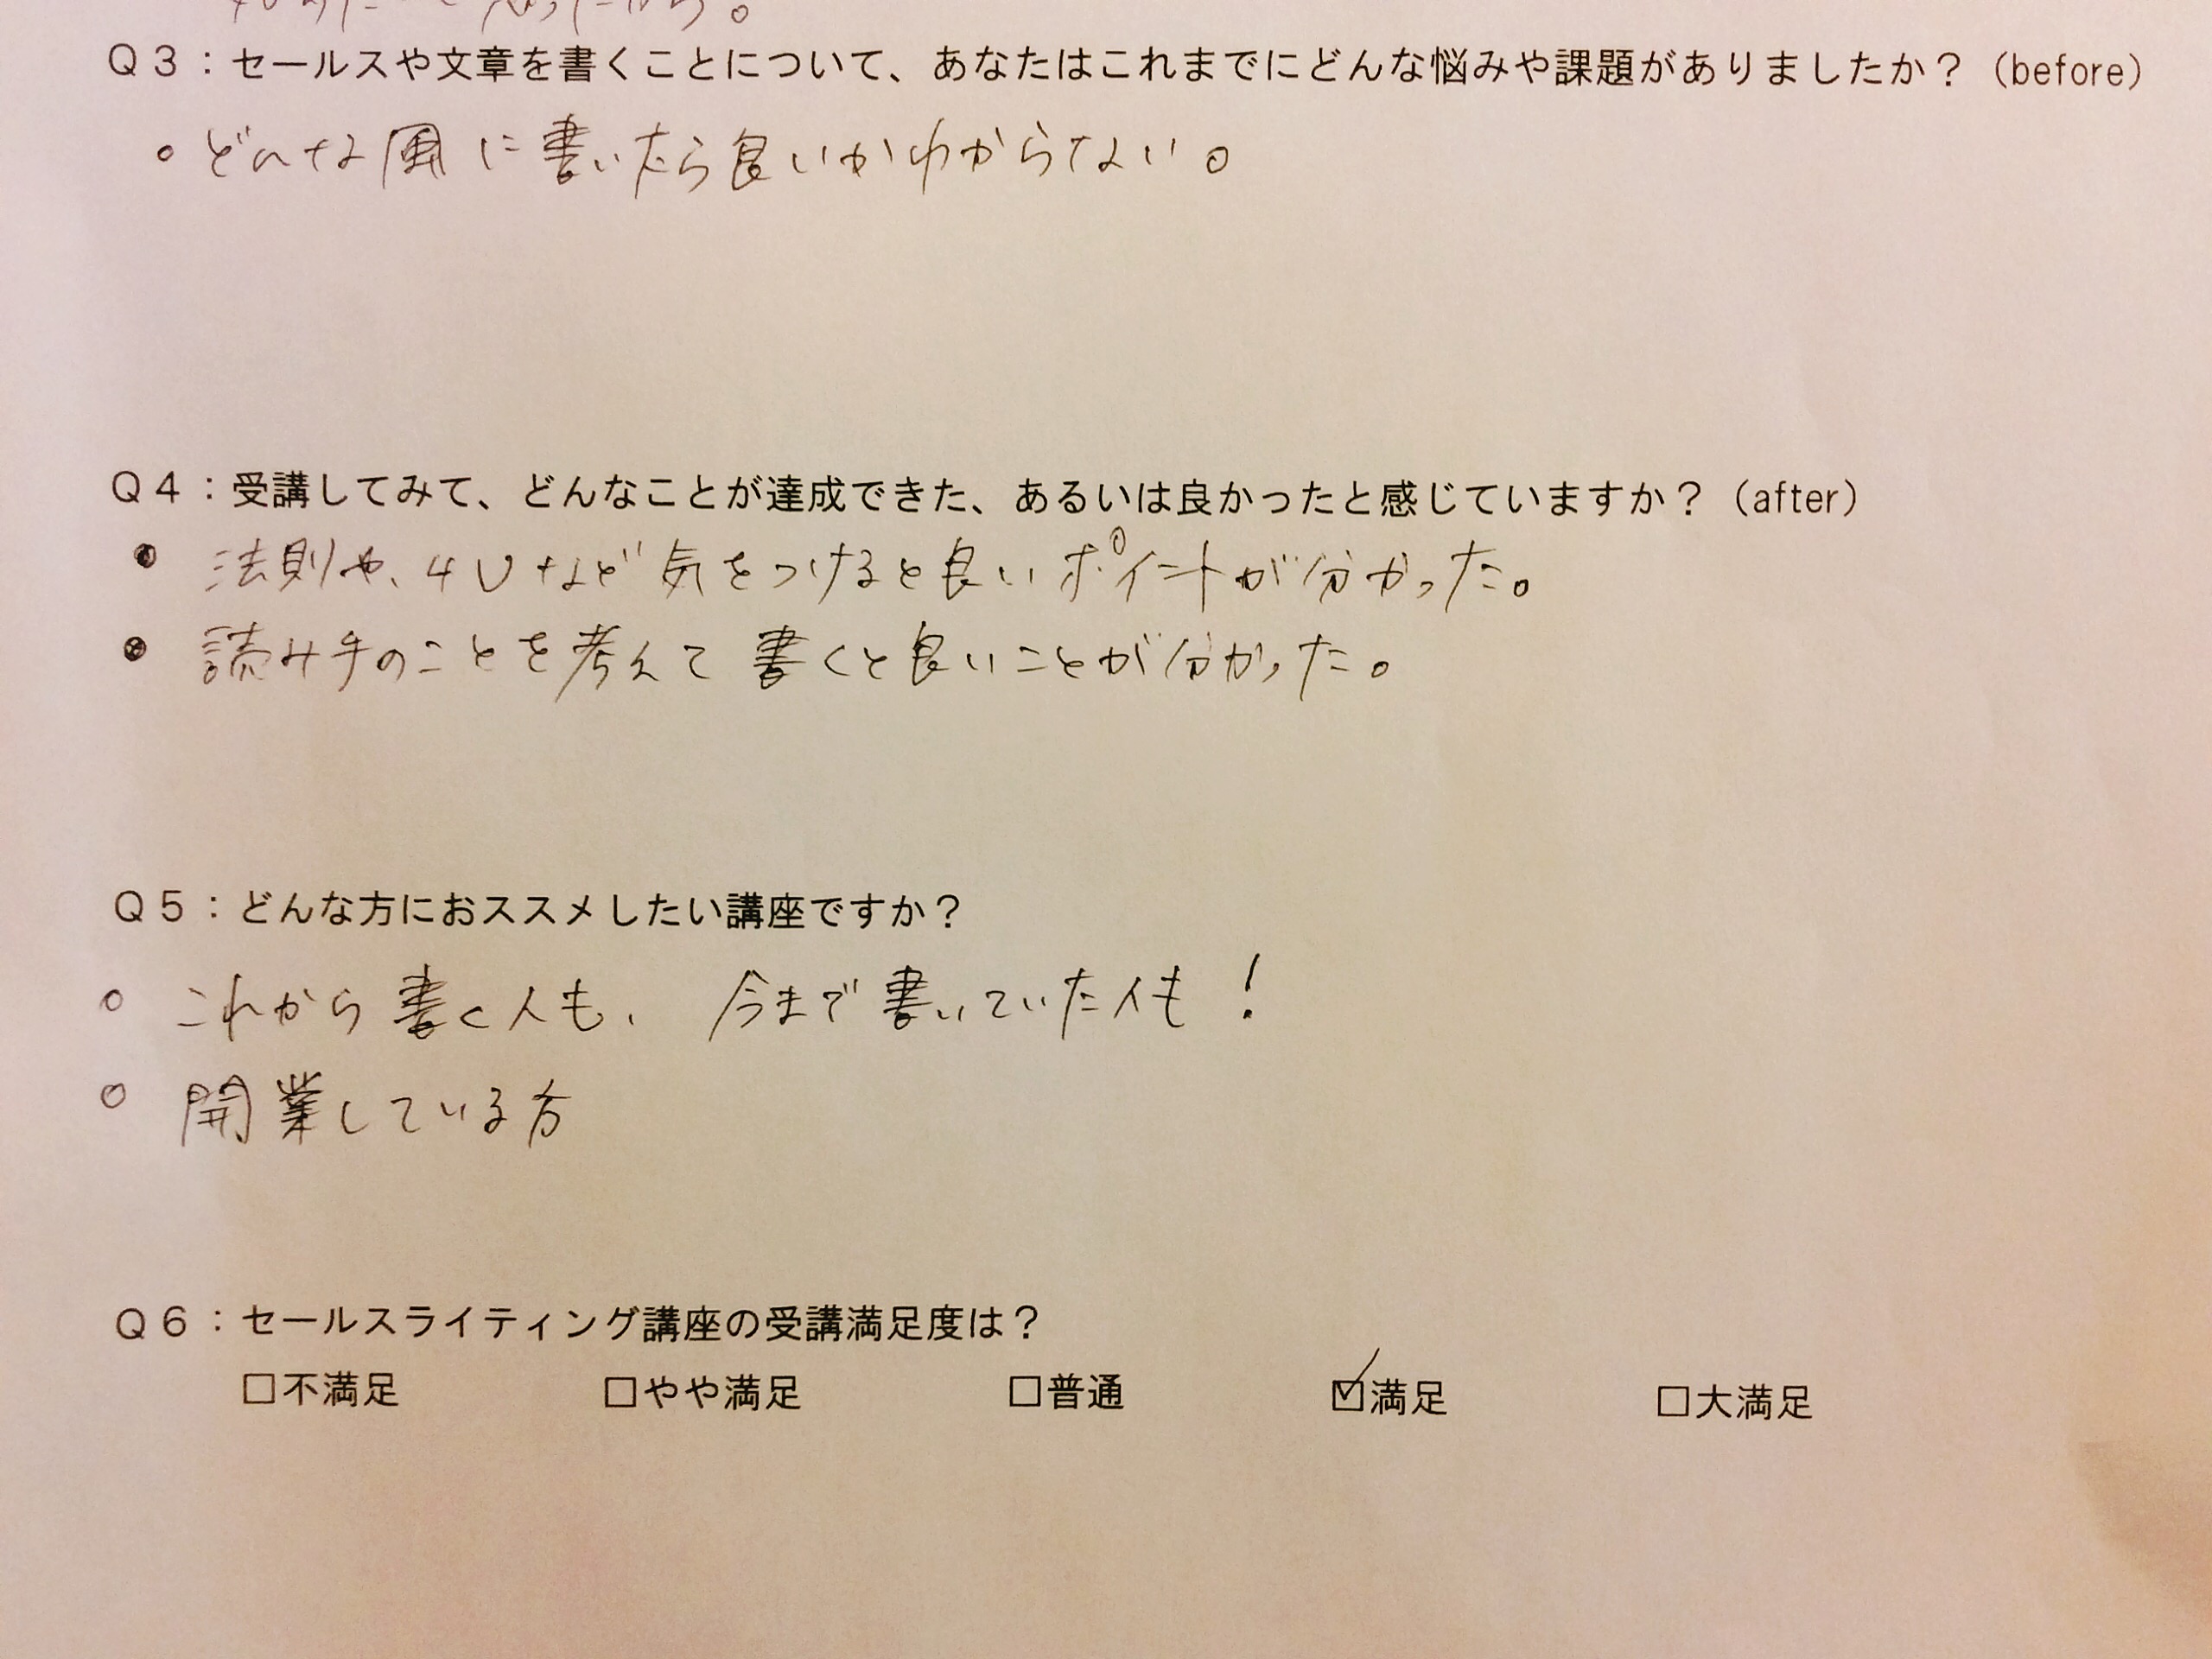 Q3:セールスや文章を書くことについて、あなたはこれまでにどんな悩みや課題がありましたか?(before)
・どんな風に書いたら良いかわからない。
Q4:受講してみて、どんなことが達成できた、あるいは良かったと感じていますか?(after)
・法則や、4Uなど気をつけると良いポイントが分かった。
・読み手のことを考えて書くと良いことが分かった。
Q5:どんな方におススメしたい講座ですか?
○これから書く人も、今まで書いていた人も!
○開業している方
Q6:セールスライティング講座の受講満足度は?
□不満足 □やや満足 □普通 ☑満足 □大満足